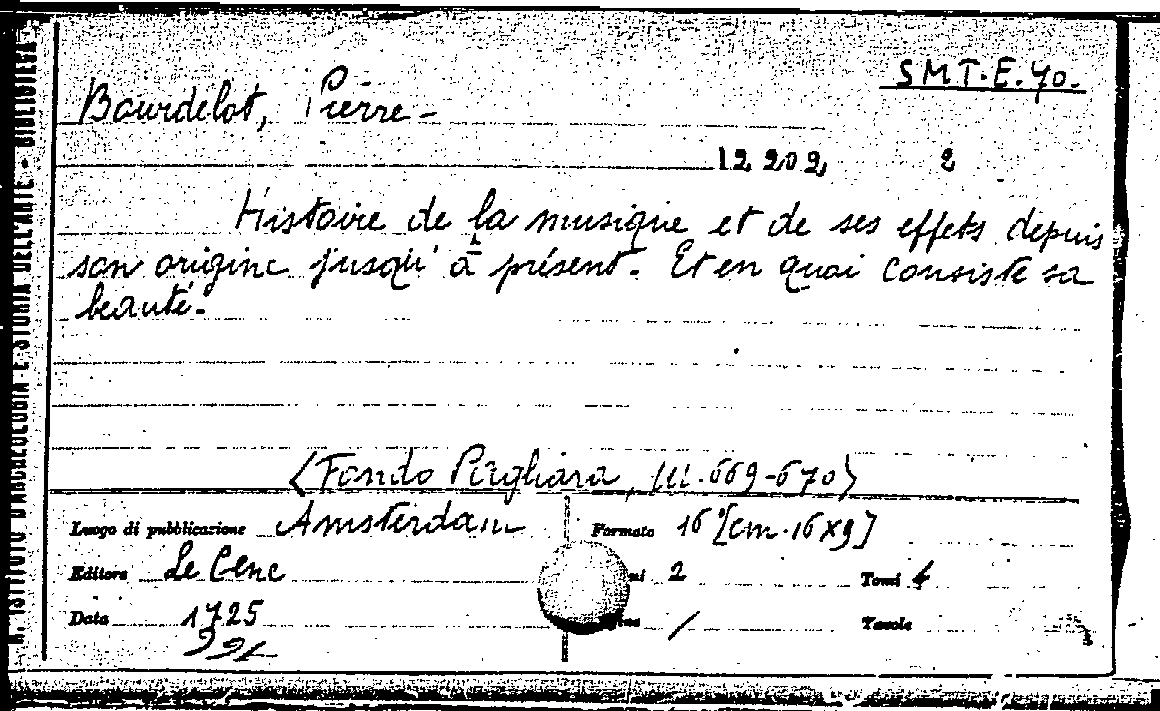 SMT.E.70.
Bourdelot, Pierre-
12202 2
Histoire de la musique et de ses effets depuis
son origine jusqu' à présent. Et en quoi consiste sa
beauté.
<Fondo Pagliara, III.669-670>
Luogo di pubblicazione Amsterdam Formato 16 [cm.16x9]
Editore Le Cene 2 Tomi 4
Data 1725 / Tavole
R. ISTITUTO D'ARCHEOLOGIA E STORIA DELL'ARTE • BIBLIOTECA